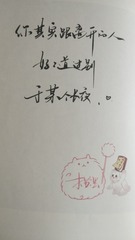 你其实跟离开的人
好好道过别
于某个长夜。